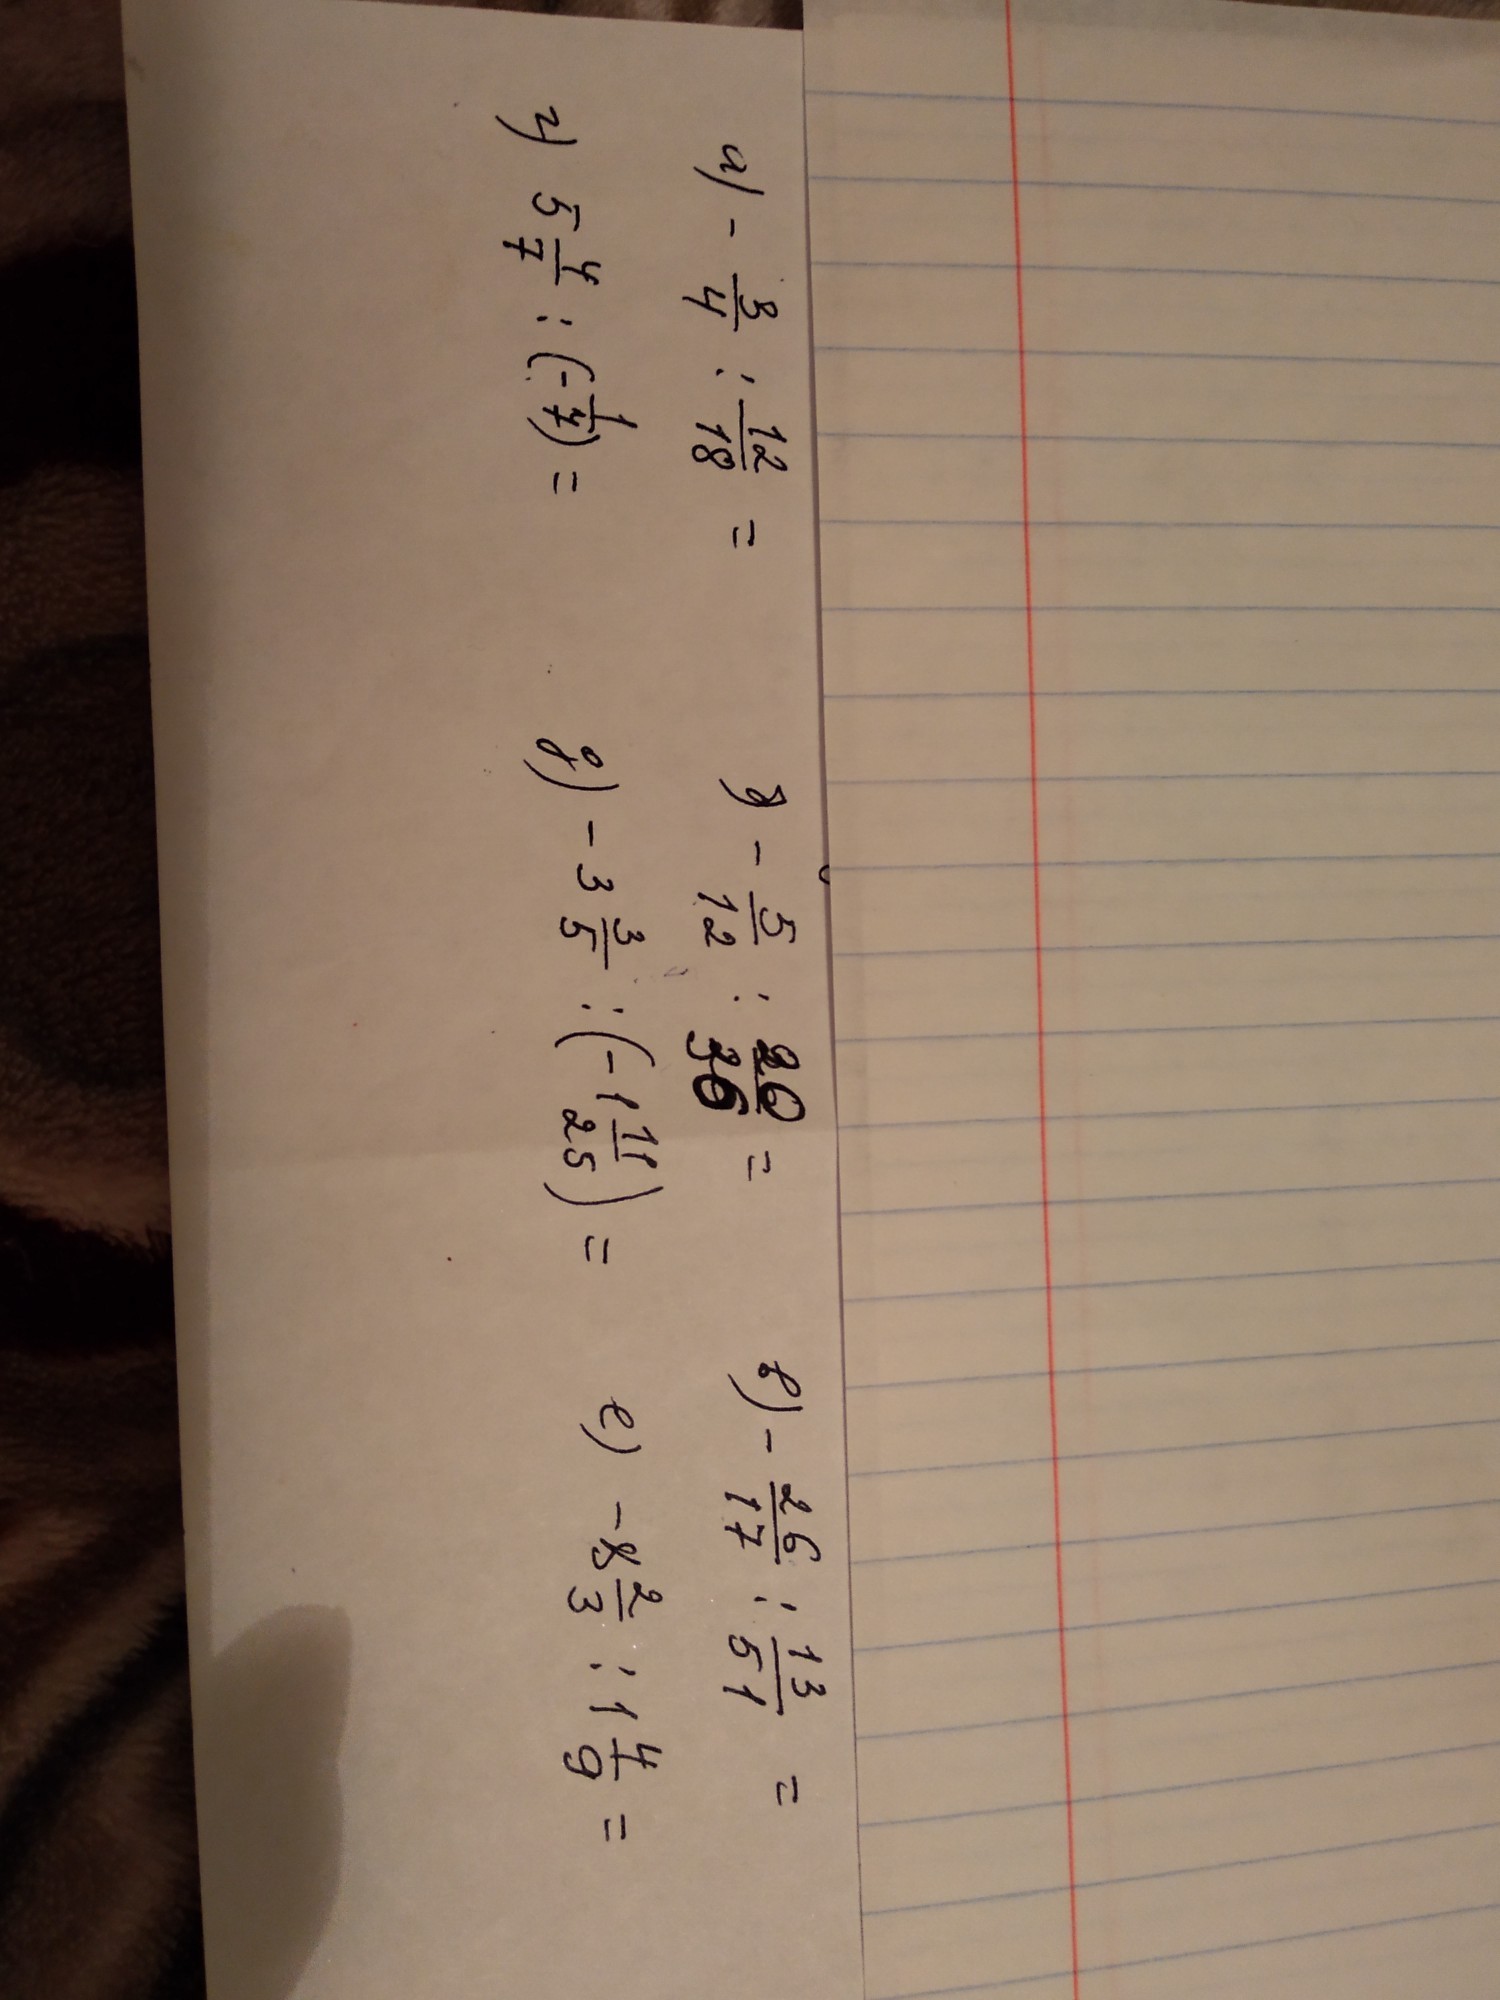 а) - 3/4 : 12/18 = б) - 5/12 : 20/36 = в) - 26/17 : 13/51 =
г) 5 4/7 : (- 1/7) = д) - 3 3/5 : (- 1 11/25) = е) - 8 2/3 : 1 4/9 =